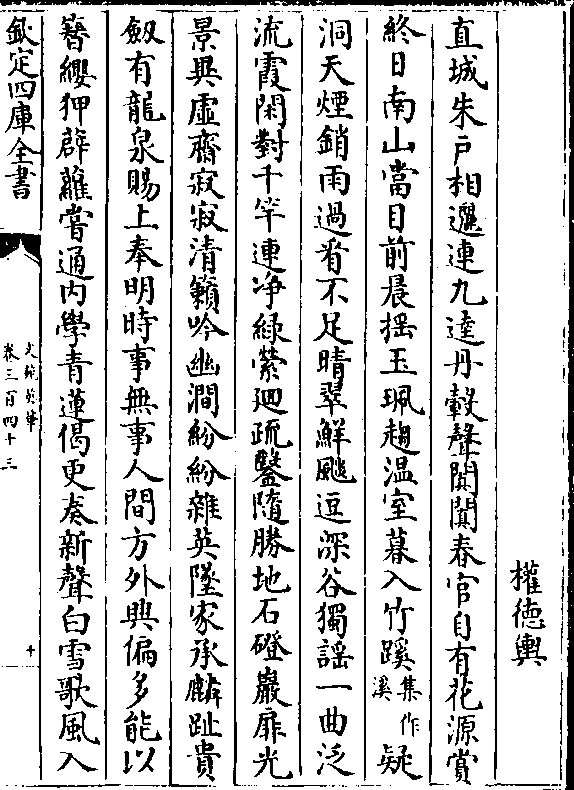 權德輿
直城朱戶相邐連九逵丹轂聲闐闐春官自有花源賞
終日南山當目前晨搖玉珮趨温室暮入竹蹊集作溪疑
洞天煙銷雨過看不足晴翠鮮飈逗深谷獨謡一曲泛
流霞閑對千竿連净緑縈廻疏鑿隨勝地石磴巖扉光
景異虚齋寂寂清籟吟幽澗紛紛雜英墜家承麟趾貴
劔有龍泉賜上奉明時事無事人間方外興偏多能以
簪纓狎薜蘿嘗通内學青蓮偈更奏新聲白雪歌風入
欽定四庫全書
文苑英華
卷三百四十三
十